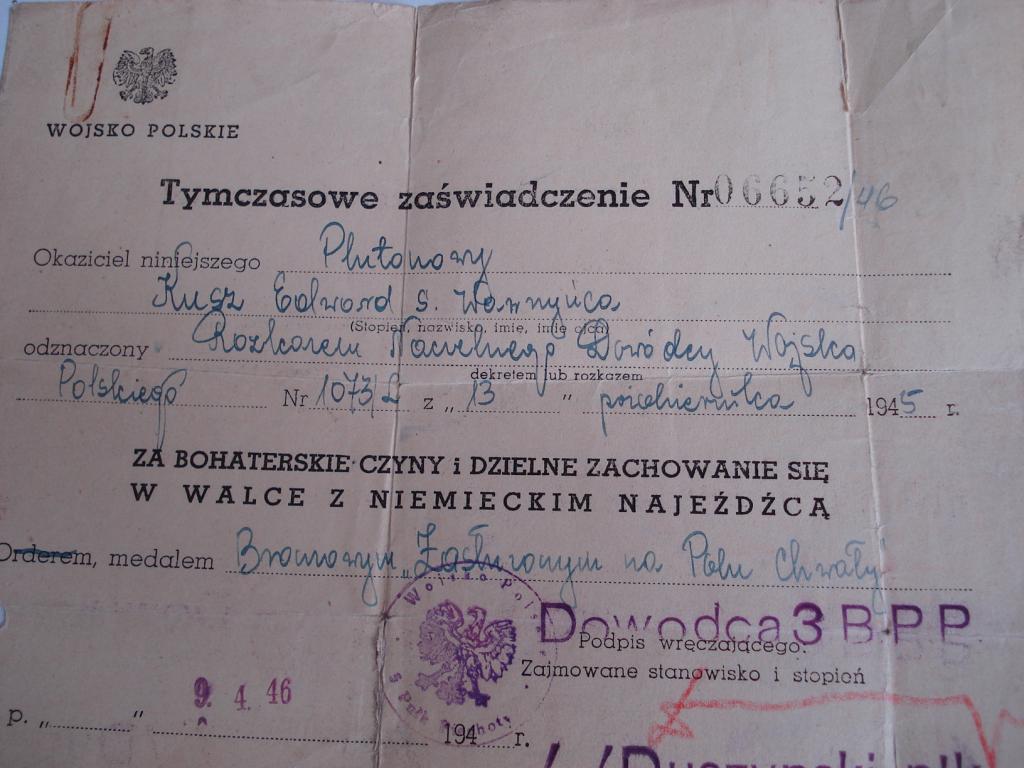 WOJSKO POLSKIE
Tymczasowe zaświadczenie Nr 06652/46
Okaziciel niniejszego Plutonowy
Kusz Edward s. Wawrzyńca
(Stopień, nazwisko, imię, imię ojca)
odznaczony Rozkazem Naczelnego Dowódcy Wojska
dekretem lub rozkazem
Polskiego Nr 1073/L z „ 13 " października 1945 r.
ZA BOHATERSKIE CZYNY i DZIELNE ZACHOWANIE SIĘ
W WALCE Z NIEMIECKIM NAJEŹDŹCĄ
Orderem, medalem Bronzowym „Zasłużonym na Polu Chwały"
Wojsko Polsk
5 Pułk
Dowodca 3 B P P
Podpis wręczającego:
Zajmowane stanowisko i stopień
p. „ " 9. 4. 46 194 r.
/-/Duszyński płk